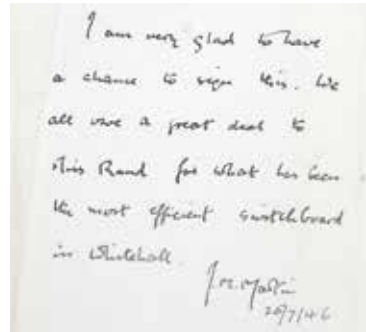 I am very glad to have
a chance to sign this. We
all owe a great deal to
Miss Rand for what has been
the most efficient switchboard
in Whitehall.
J.M. Martin
26/7/46